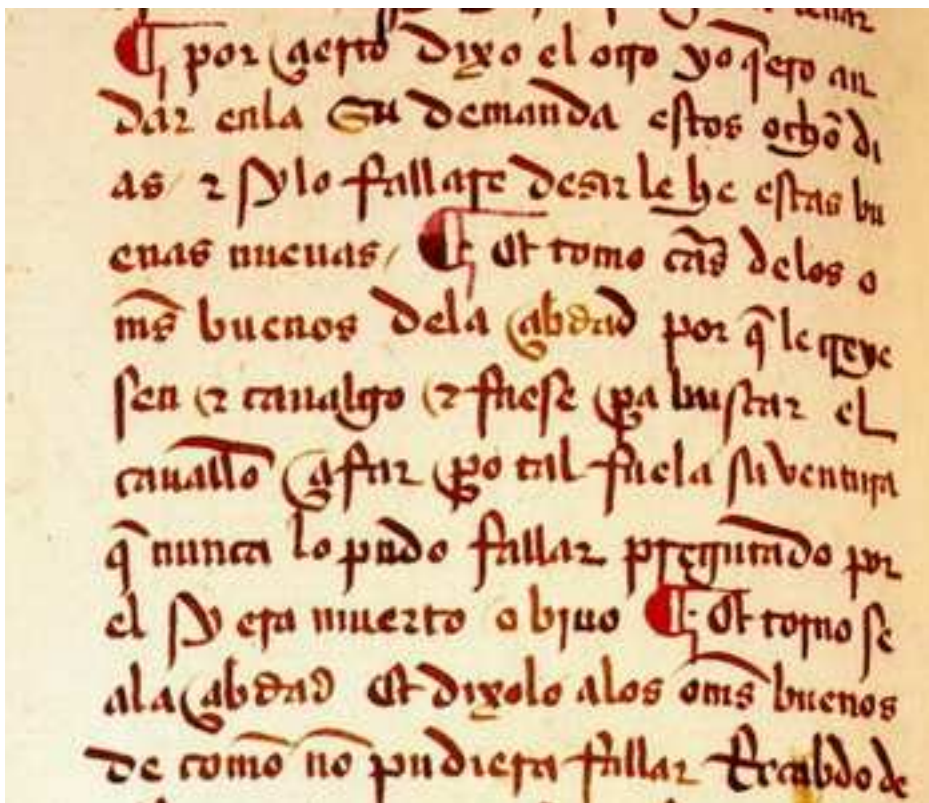 ¶ por çierto dixo el otro yo q̃ero an
dar enla su demanda estos ocho di
as / ⁊ sy lo fallare desir le he estas bu
enas nueuas / ¶ Et tomo cãs delos o
m̃s buenos dela çabdad por q̃ le creye
sen ⁊ caualgo ⁊ fuese pa buscar el
cauallo çifar po tal fue la su ventura
q̃ nunca lo pudo fallar pregũtado por
el sy era muerto o biuo ¶ Et torno se
ala çabdad Et dixolo alos om̃s buenos
de como nõ pudiera fallar Recabdo de